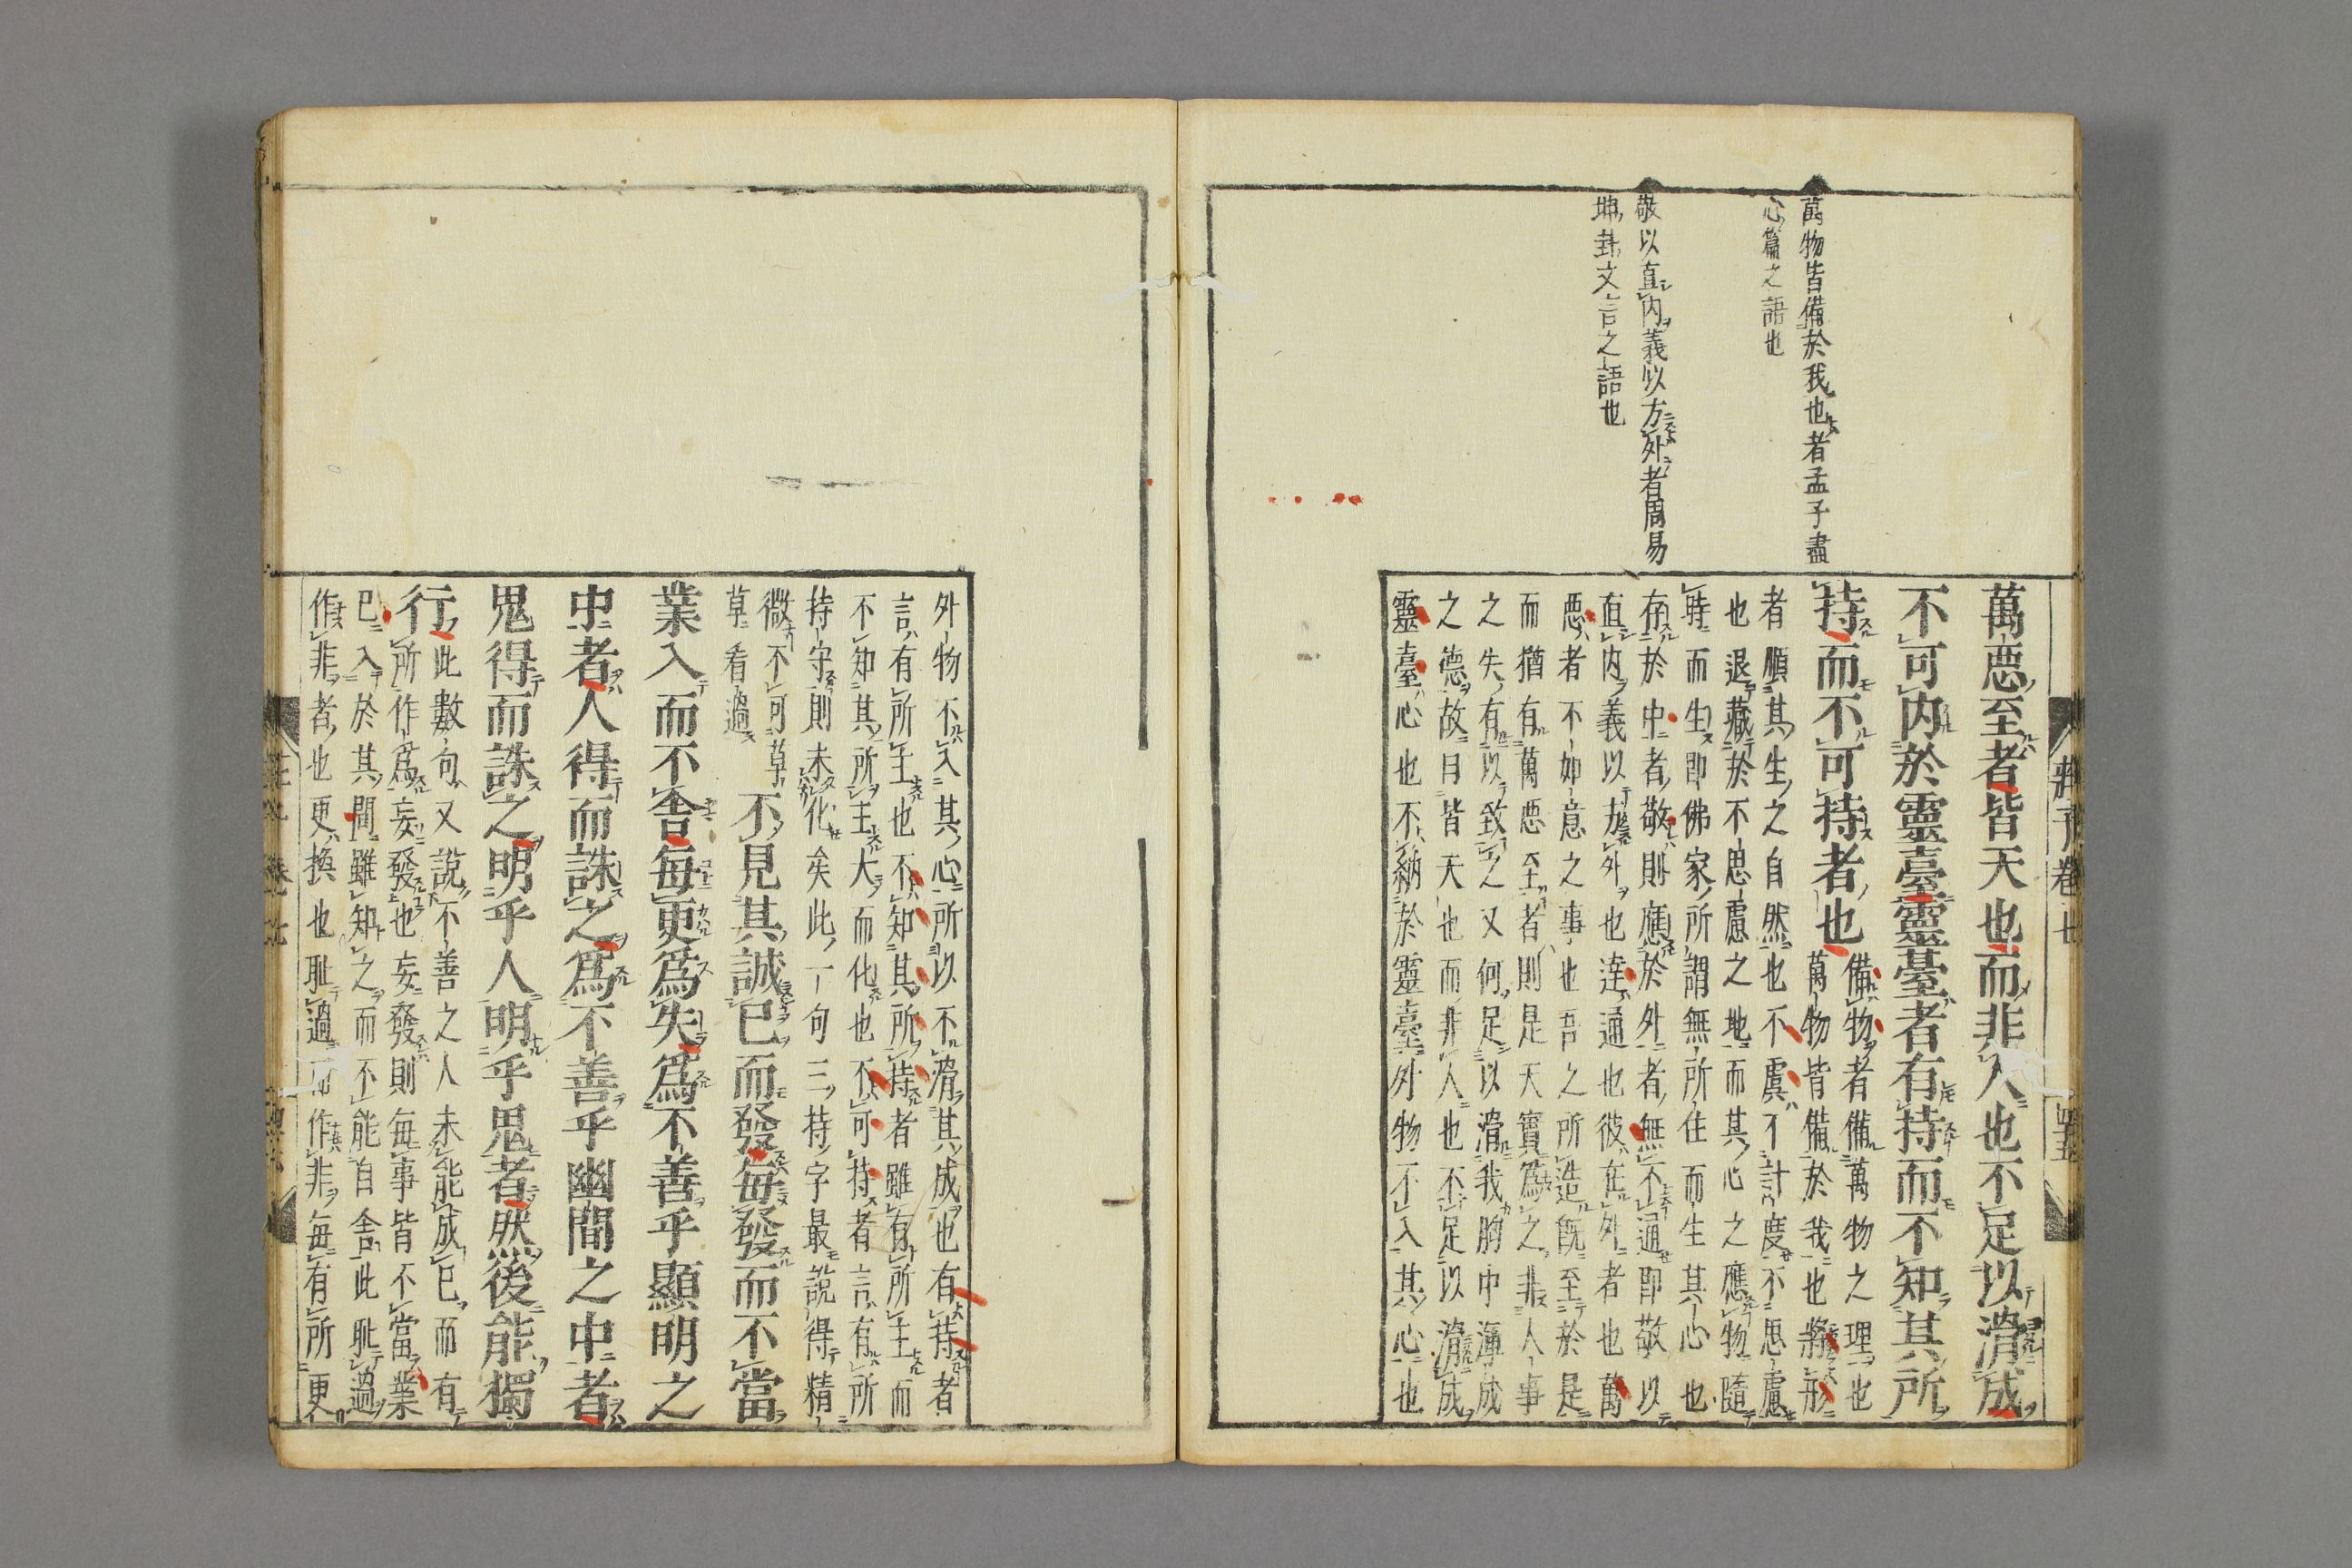 莊子卷七
四五
萬物皆備於我也者孟子盡
心篇之語也
敬以直内義以方外者周易
坤卦文言之語也
萬惡至者皆天也而非人也不足以滑成
不可内於靈臺靈臺者有持而不知其所
持而不可持者也
備物者備萬物之理也
萬物皆備於我也將形
者順其生之自然也不虞不計度不思慮
也退藏於不思慮之地而其心之應物隨
時而生即佛家所謂無所住而生其心也
存於中者敬則應於外者無不通即敬以
直内義以方外也達通也彼在外者也萬
惡者不如意之事也吾之所造既至於是
而猶有萬惡至者則是天實爲之非人事
之失有以致之又何足以滑我胸中渾成
之德故曰皆天也而非人也不足以滑成
靈臺心也不納於靈臺外物不入其心也
外物不入其心所以不滑其成也有持者
言有所主也不知其所持者雖有所主而
不知其所主大而化也不可持者言有所
持守則未化矣此一句三持字最說得精
微不可草
草看過
不見其誠已而發每發而不當
業入而不舍每更爲失爲不善乎顯明之
中者人得而誅之爲不善乎幽間之中者
鬼得而誅之明乎人明乎鬼者然後能獨
行
此數句又說不善之人未能成已而有
所作爲妄發也妄發則每事皆不當業
已入於其間雖知之而不能自舍此耻過
作非者也更換也耻過而作非每有所更